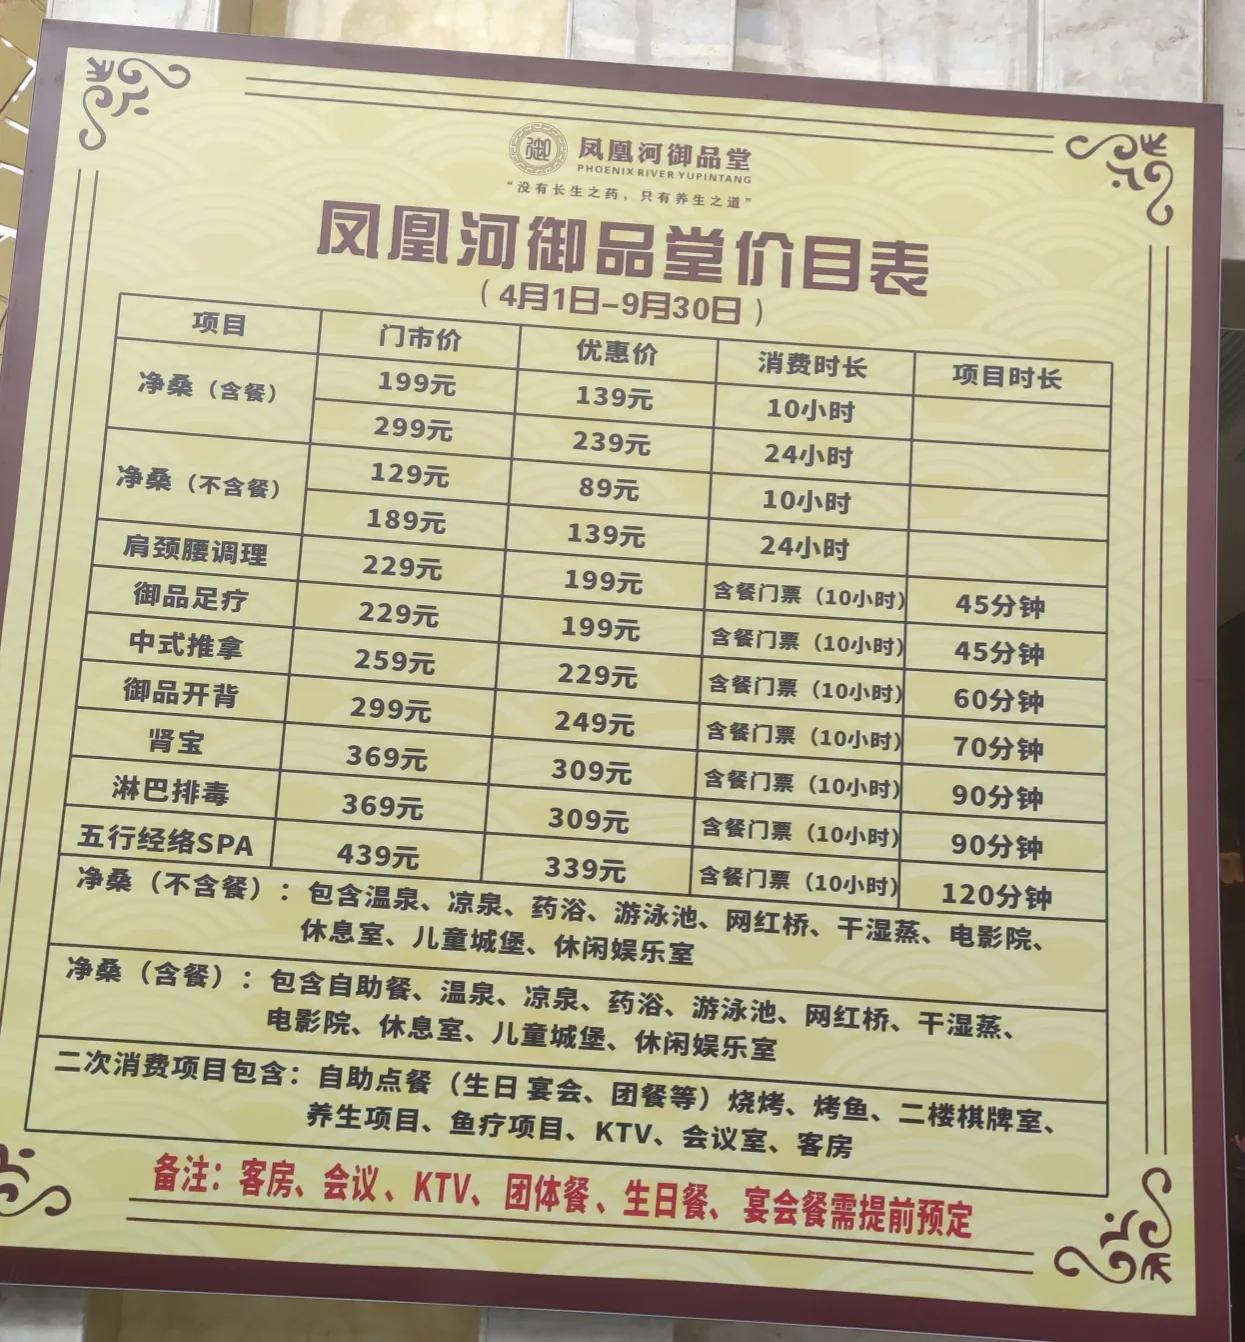 御 凤凰河御品堂
PHOENIX RIVER YUPINTANG
“没有长生之药，只有养生之道”
凤凰河御品堂价目表
（4月1日-9月30日）
项目 门市价 优惠价 消费时长 项目时长
净桑（含餐） 199元 139元 10小时
299元 239元 24小时
净桑（不含餐） 129元 89元 10小时
189元 139元 24小时
肩颈腰调理 229元 199元 含餐门票（10小时） 45分钟
御品足疗 229元 199元 含餐门票（10小时） 45分钟
中式推拿 259元 229元 含餐门票（10小时） 60分钟
御品开背 299元 249元 含餐门票（10小时） 70分钟
肾宝 369元 309元 含餐门票（10小时） 90分钟
淋巴排毒 369元 309元 含餐门票（10小时） 90分钟
五行经络SPA 439元 339元 含餐门票（10小时） 120分钟
净桑（不含餐）：包含温泉、凉泉、药浴、游泳池、网红桥、干湿蒸、电影院、
休息室、儿童城堡、休闲娱乐室
净桑（含餐）：包含自助餐、温泉、凉泉、药浴、游泳池、网红桥、干湿蒸、
电影院、休息室、儿童城堡、休闲娱乐室
二次消费项目包含：自助点餐（生日 宴会、团餐等）烧烤、烤鱼、二楼棋牌室、
养生项目、鱼疗项目、KTV、会议室、客房
备注：客房、会议、KTV、团体餐、生日餐、宴会餐需提前预定